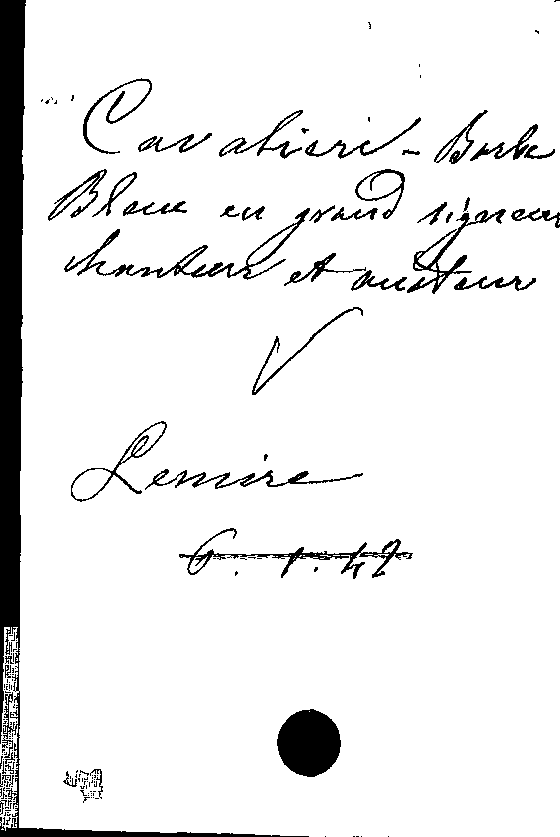 Cavalieri - Barbe
Bleue en grand signeur
chanteur et auditeur
Lemire
6. 1. 42